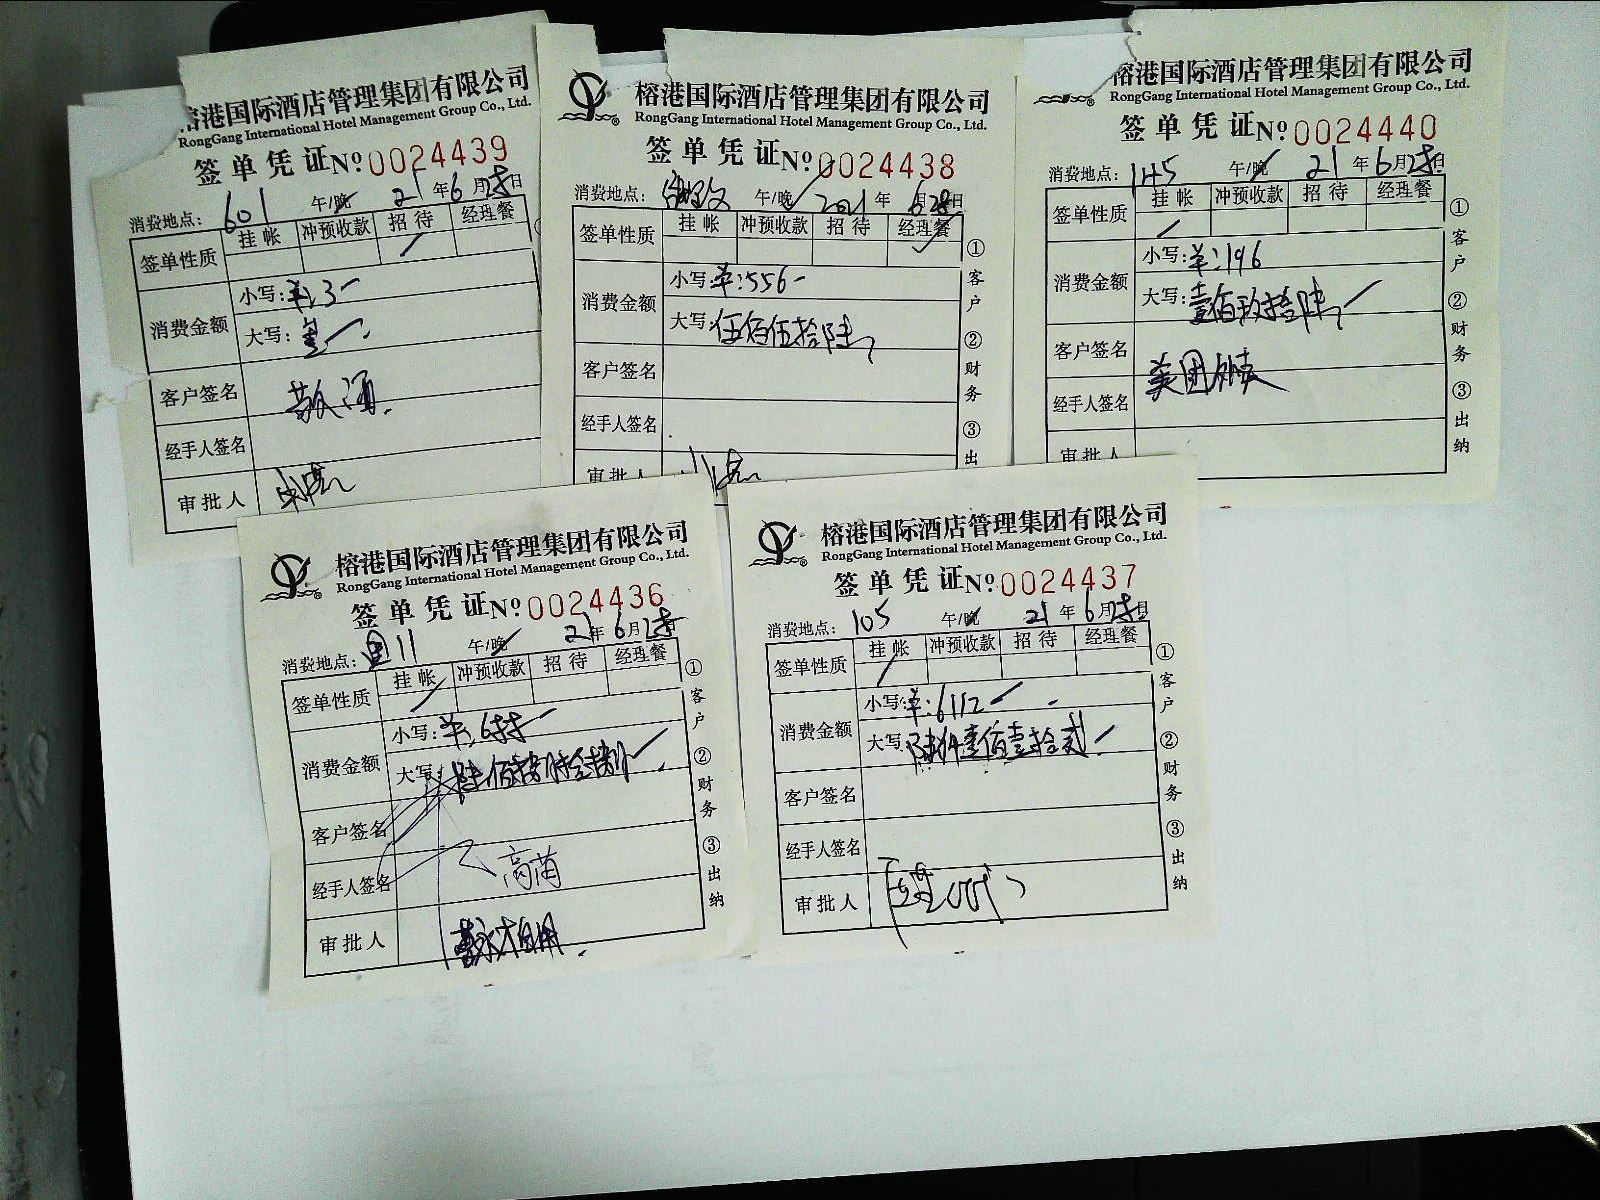 榕港国际酒店管理集团有限公司
RongGang International Hotel Management Group Co., Ltd.
签单凭证 №0024439
消费地点: 601 午/晚 21年6月28日
签单性质 挂帐 冲预收款 招待 经理餐
消费金额 小写:
大写:
客户签名 敬酒
经手人签名
审批人
榕港国际酒店管理集团有限公司
RongGang International Hotel Management Group Co., Ltd.
签单凭证 №0024438
消费地点: 午/晚 2021年6月28日
签单性质 挂帐 冲预收款 招待 经理餐
消费金额 小写: 单:556
大写: 伍佰伍拾陆
客户签名
经手人签名
审批人
①客户 ②财务 ③出
榕港国际酒店管理集团有限公司
RongGang International Hotel Management Group Co., Ltd.
签单凭证 №0024440
消费地点: 145 午/晚 21年6月28日
签单性质 挂帐 冲预收款 招待 经理餐
消费金额 小写: 单:196
大写: 壹佰玖拾陆
客户签名 美团外卖
经手人签名
审批人
①客户 ②财务 ③出纳
榕港国际酒店管理集团有限公司
RongGang International Hotel Management Group Co., Ltd.
签单凭证 №0024436
消费地点: 11 午/晚 21年6月28日
签单性质 挂帐 冲预收款 招待 经理餐
消费金额 小写: 单:
大写:
客户签名
经手人签名
审批人
①客户 ②财务 ③出纳
榕港国际酒店管理集团有限公司
RongGang International Hotel Management Group Co., Ltd.
签单凭证 №0024437
消费地点: 105 午/晚 21年6月28日
签单性质 挂帐 冲预收款 招待 经理餐
消费金额 小写: 单:6112
大写: 陆仟壹佰壹拾贰
客户签名
经手人签名
审批人
①客户 ②财务 ③出纳